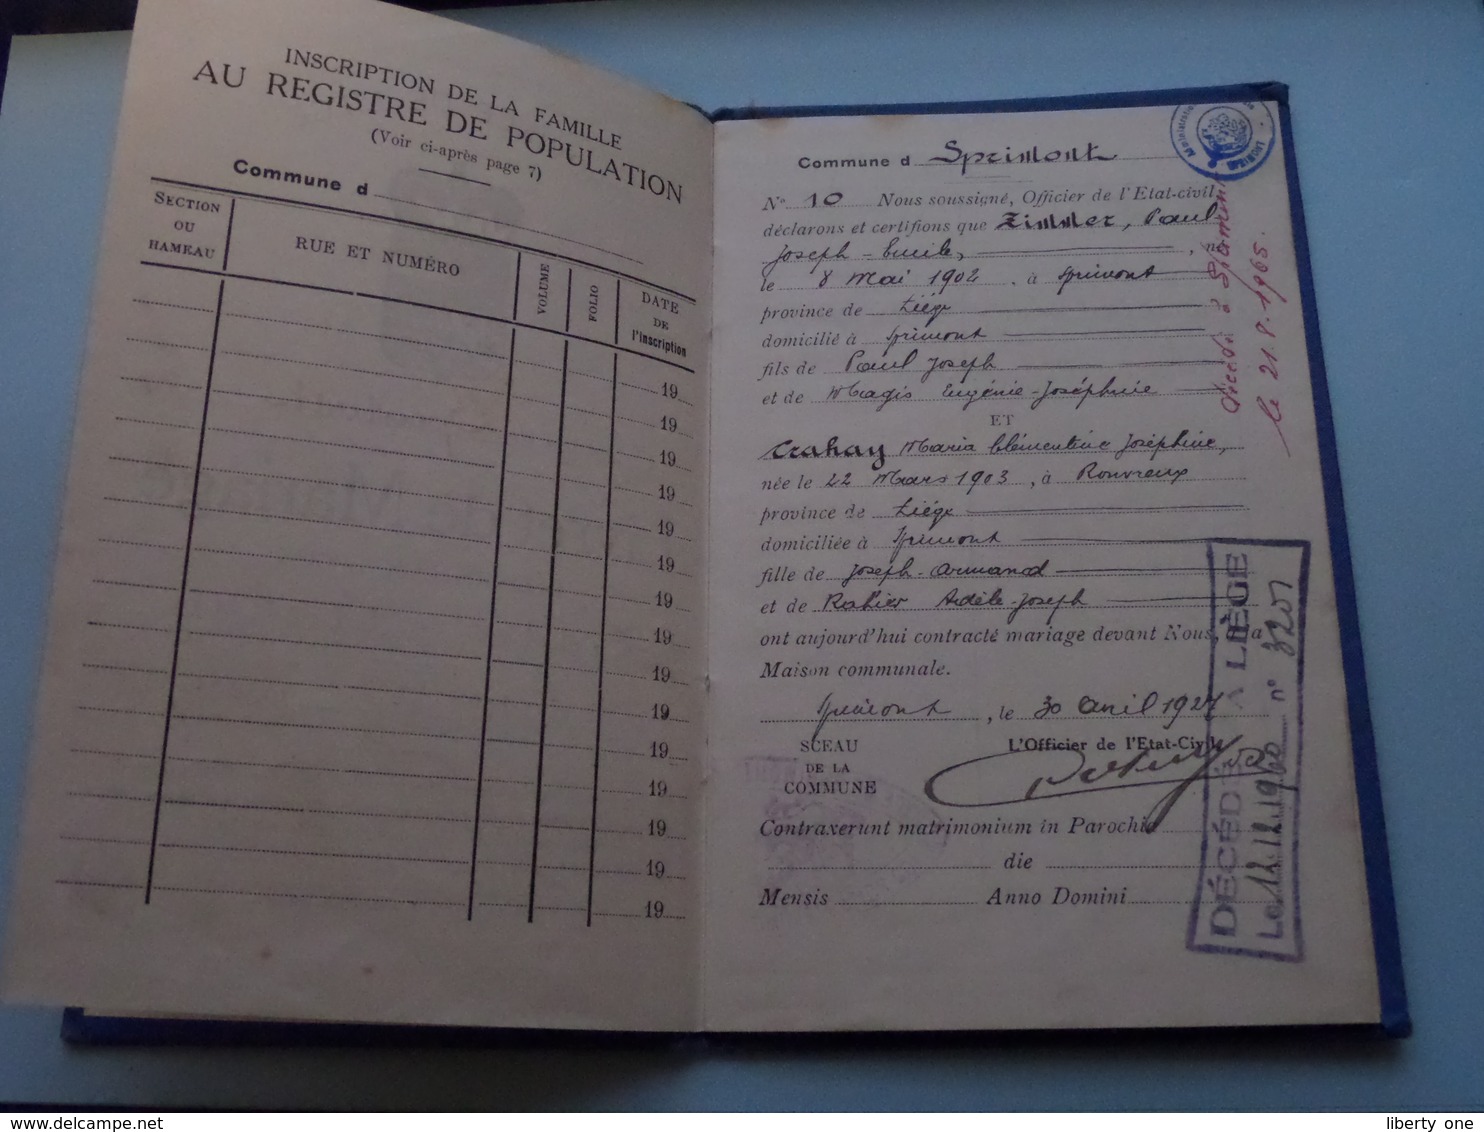 INSCRIPTION DE LA FAMILLE
AU REGISTRE DE POPULATION
(Voir ci-après page 7)
Commune d
SECTION
OU
HAMEAU
RUE ET NUMÉRO
VOLUME
FOLIO
DATE
DE
l'inscription
19
19
19
19
19
19
19
19
19
19
19
19
19
19
19
Commune d Sprimont
N° 10 Nous soussigné, Officier de l'Etat-civil,
déclarons et certifions que Zimmer, Paul
Joseph-Emile, né
le 8 Mai 1902 à Sprimont
province de Liége
domicilié à Sprimont
fils de Paul Joseph
et de Magis Eugénie-Joséphine
ET
Crahay Maria Clémentine Joséphine,
née le 22 Mars 1903, à Rouvreux
province de Liége
domiciliée à Sprimont
fille de Joseph-Armand
et de Rahier Adèle-Joseph
ont aujourd'hui contracté mariage devant Nous, à la
Maison communale.
Sprimont, le 30 avril 1927
SCEAU
DE LA
COMMUNE
L'Officier de l'Etat-Civil,
Contraxerunt matrimonium in Parochia
die
Mensis Anno Domini
Décédé à
le 21.8.1965.
DÉCÉDÉ A LIÈGE
Le 12.12.1960 n°
delcampe.net
liberty one